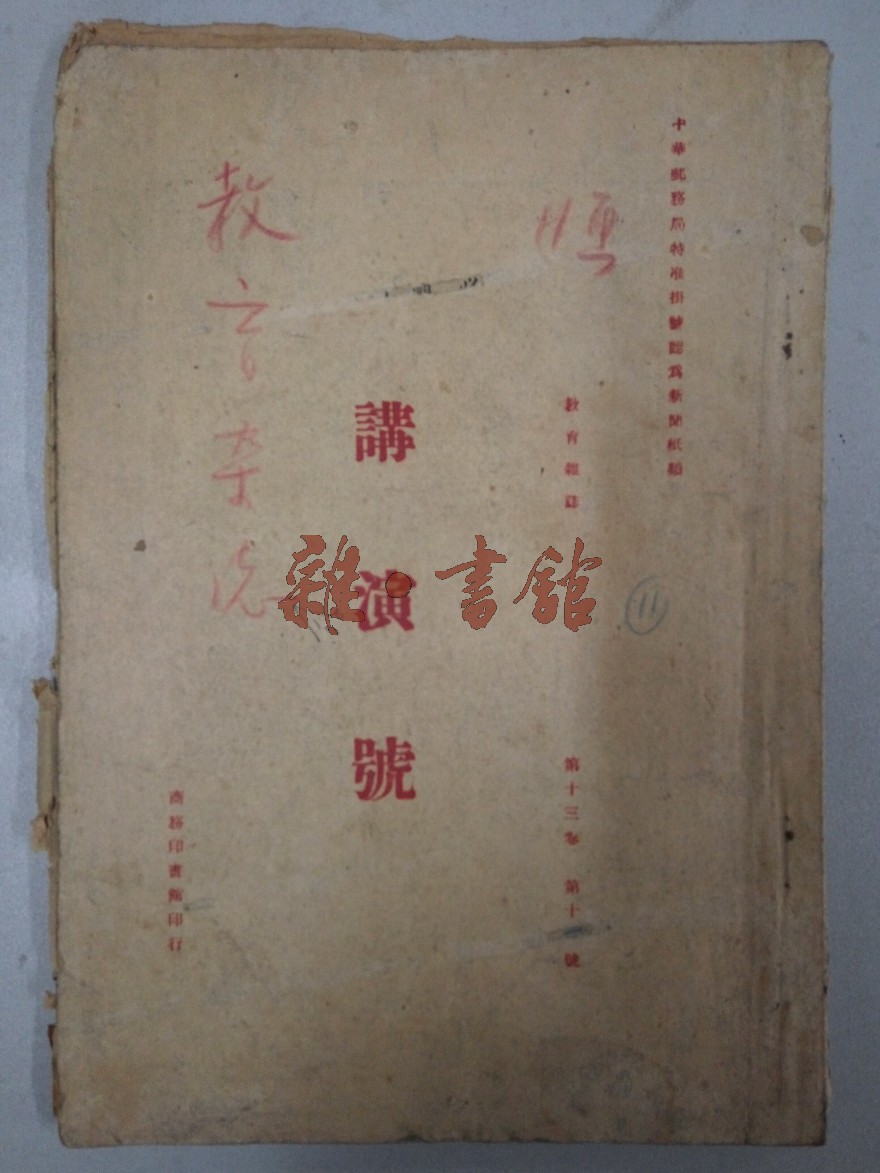 中華郵務局特准掛號認爲新聞紙類
教育雜誌 第十三卷 第十一號
講演號
商務印書館印行
教育
11
雜·書館